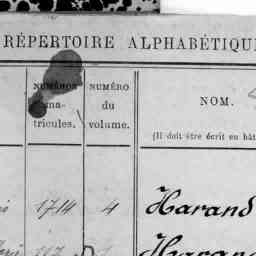 RÉPERTOIRE ALPHABÉTIQU
NUMÉROS NUMÉRO
ma- du NOM.
tricules. volume.
(Il doit être écrit en bât
1714 4 Harand
Harand